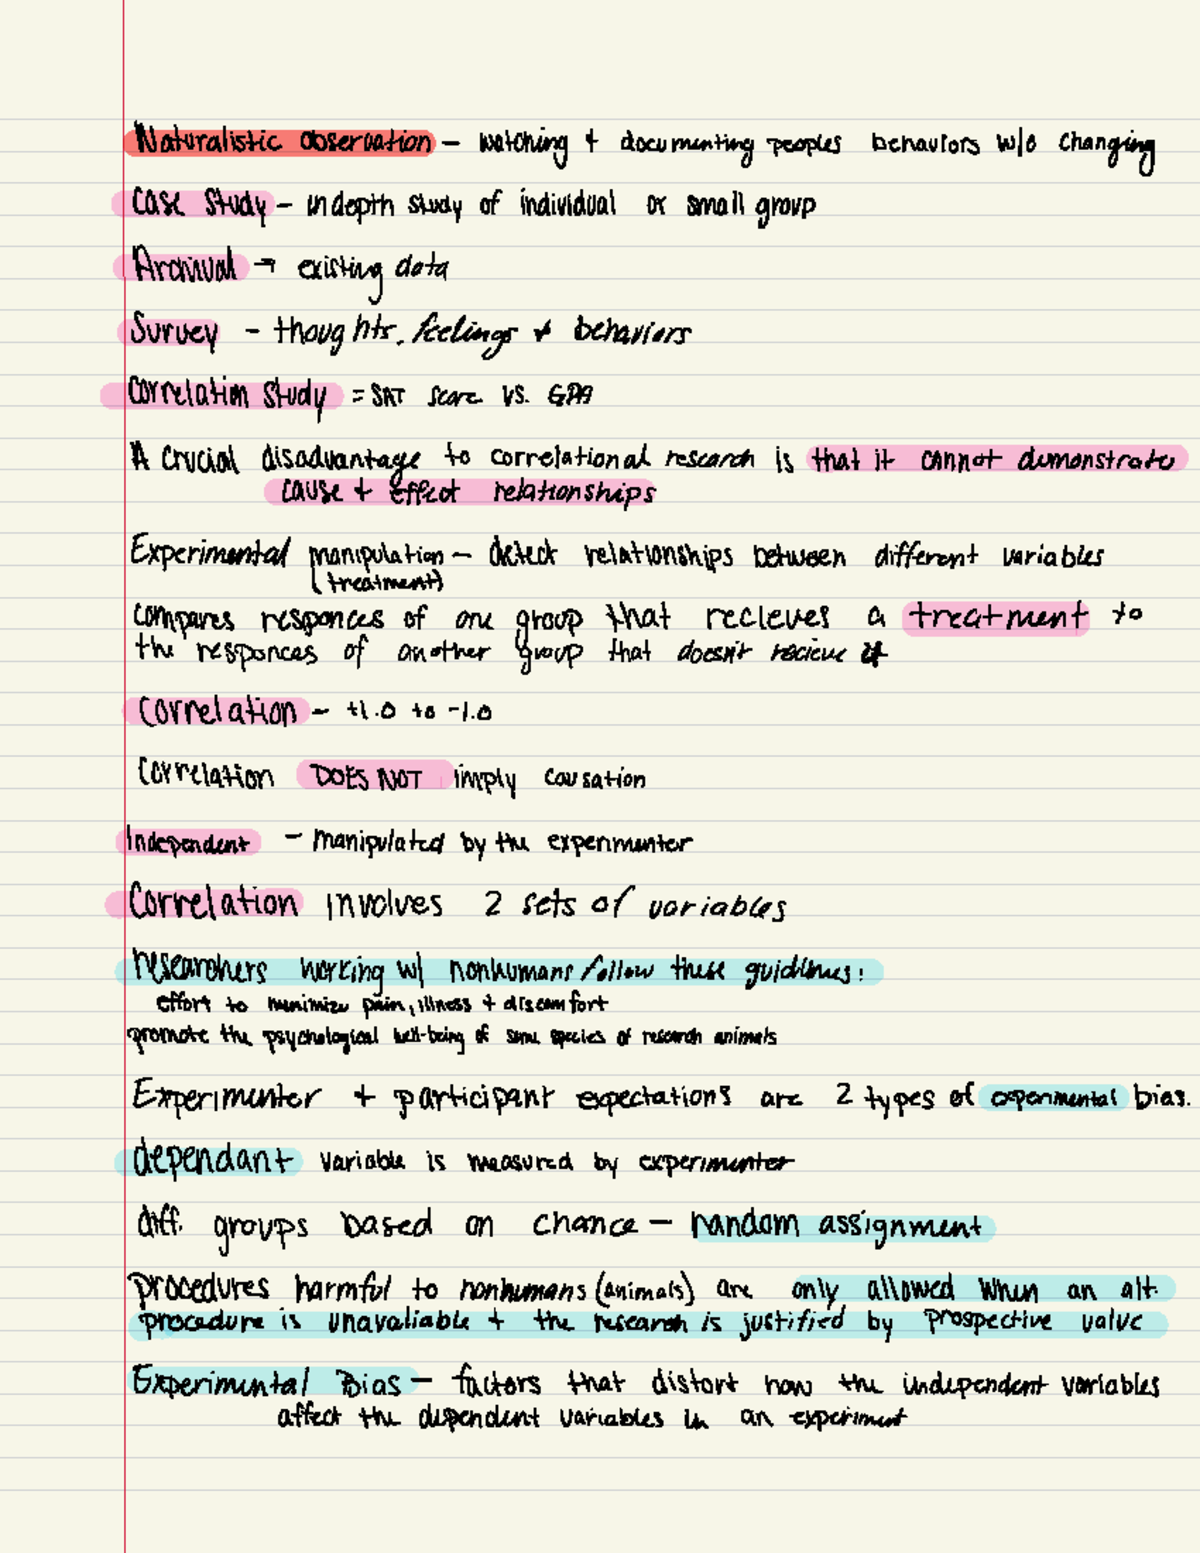 Naturalistic observation – watching + documenting peoples behaviors w/o changing
Case Study – indepth study of individual or small group
Archival → existing data
Survey – thoughts, feelings + behaviors
Correlation Study = SAT score vs. GPA
A crucial disadvantage to correlational research is that it cannot demonstrate
cause + effect relationships
Experimental manipulation – detect relationships between different variables
(treatment)
compares responces of one group that recieves a treatment to
the responces of another group that doesn't recieve it
Correlation – +1.0 to -1.0
Correlation DOES NOT imply causation
Independent – manipulated by the experimenter
Correlation involves 2 sets of variables
researchers working w/ nonhumans follow these guidlines:
effort to minimize pain, illness + discomfort
promote the psychological well-being of some species of research animals
Experimenter + participant expectations are 2 types of experimental bias.
dependant variable is measured by experimenter
diff. groups based on chance – random assignment
procedures harmful to nonhumans (animals) are only allowed when an alt.
procedure is unavaliable + the research is justified by prospective value
Experimental Bias – factors that distort how the independent variables
affect the dependent variables in an experiment